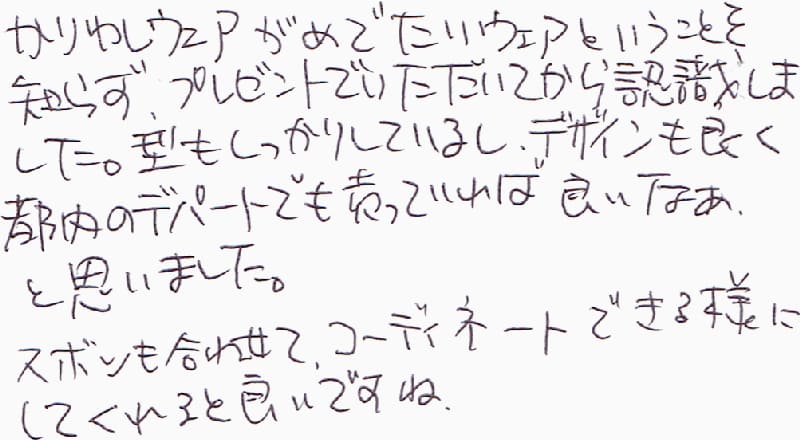 かりゆしウェアがめでたいウェアということを
知らず、プレゼントでいただいてから認識しま
した。型もしっかりしているし、デザインも良く
都内のデパートでも売っていれば良いなあ、
と思いました。
スボンも合わせて、コーディネートできる様に
してくれると良いですね。